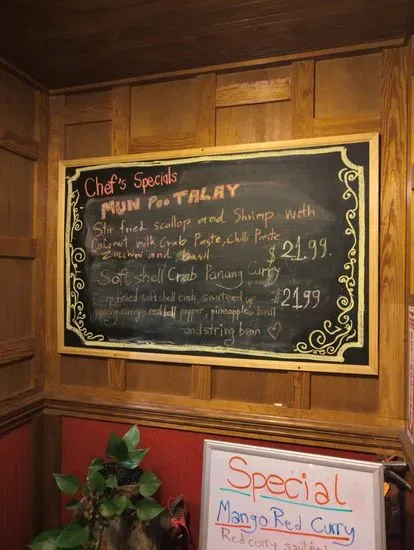 Chef's Specials
MUN POO TALAY
Stir fried scallop and Shrimp with
Coconut milk Crab Paste, Chilli Paste
Zucchini and basil $21.99.
Soft shell Crab Panang Curry
Deep fried soft shell crab, sauteen w/ $21.99
panang curry, red bell pepper, pineapple, basil
and string bean
Special
Mango Red Curry
Red curry